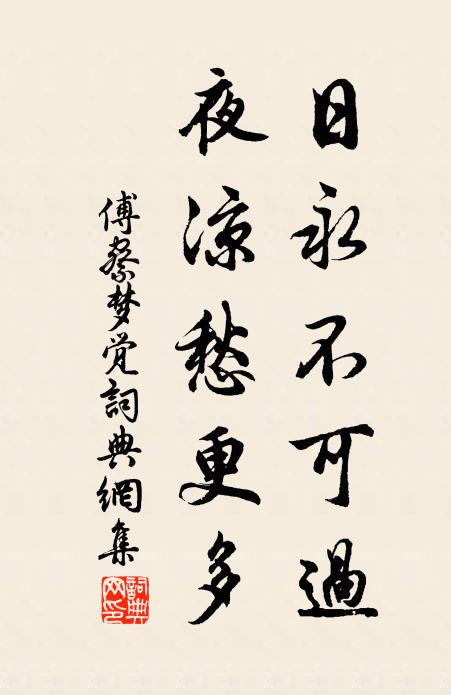 日永不可過
夜涼愁更多
傅察梦觉詞典網集
詞典网印